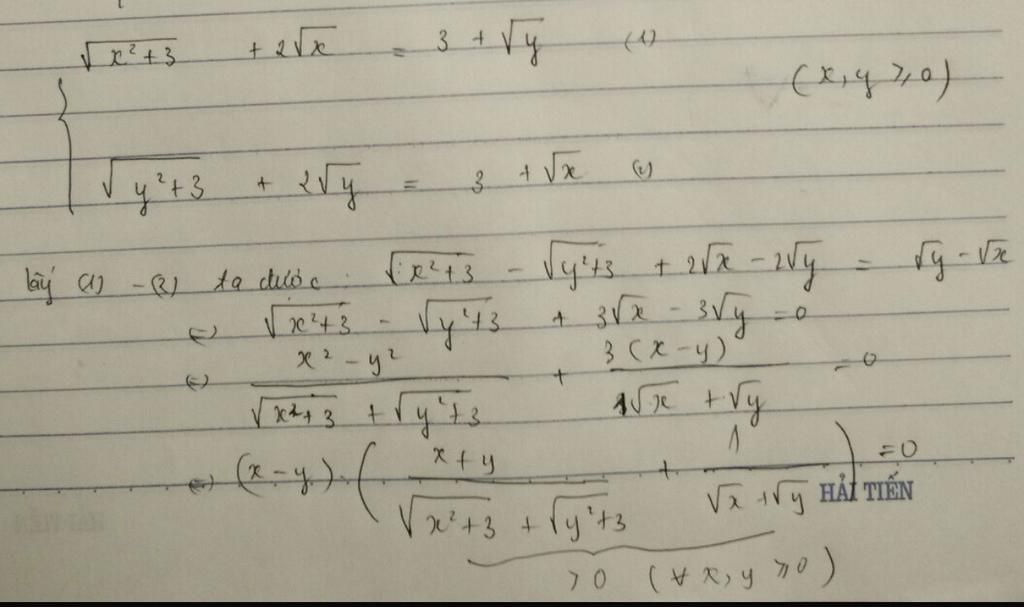 √(x²+3) + 2√x = 3 + √y (1)
(x, y ≥ 0)
√(y²+3) + 2√y = 3 + √x (2)
lấy (1) - (2) ta được : √(x²+3) - √(y²+3) + 2√x - 2√y = √y - √x
⇔ √(x²+3) - √(y²+3) + 3√x - 3√y = 0
⇔ (x² - y²)/(√(x²+3) + √(y²+3)) + 3(x-y)/(√x + √y) = 0
⇔ (x-y).((x+y)/(√(x²+3) + √(y²+3)) + 1/(√x + √y)) = 0
HẢI TIẾN
> 0 (∀ x, y ≥ 0)